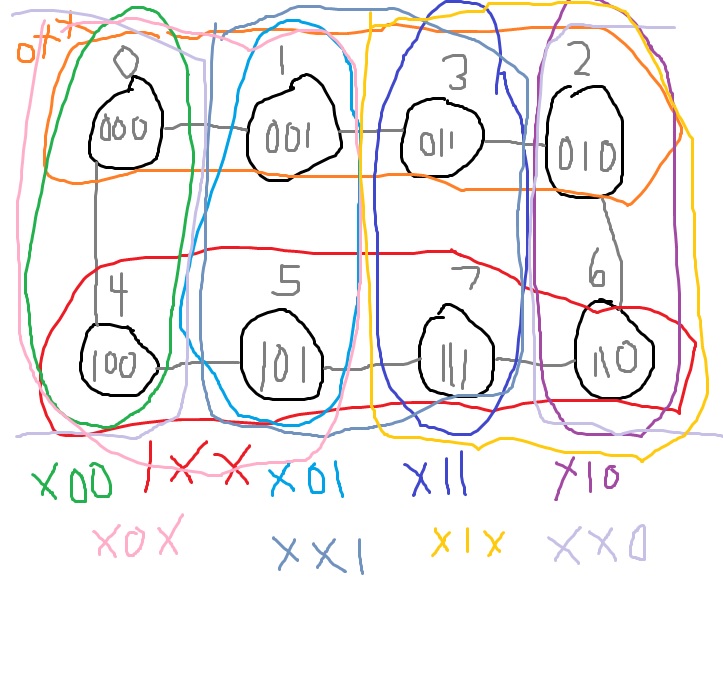 0XX
0 1 3 2
000 001 011 010
4 5 7 6
100 101 111 110
X00 1XX X01 X11 X10
X0X XX1 X1X XX0